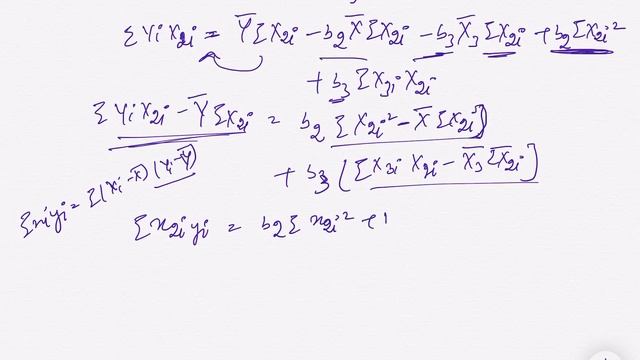 Σ Yi X2i = Ȳ Σ X2i - b2 X̄ Σ X2i - b3 X̄3 Σ X2i + b2 Σ X2i²
+ b3 Σ X3i X2i
Σ Yi X2i - Ȳ Σ X2i = b2 [Σ X2i² - X̄ Σ X2i]
+ b3 [Σ X3i X2i - X̄3 Σ X2i]
Σ xi yi = Σ (Xi - X̄) (Yi - Ȳ)
Σ x2i yi = b2 Σ x2i² +